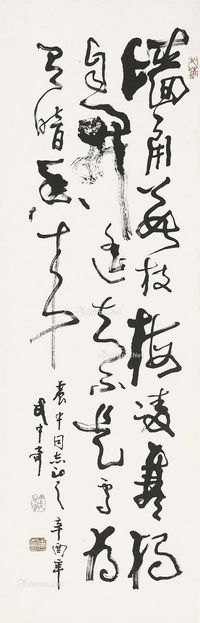 墙角數枝梅凌寒獨
自開遥知不是雪為
有暗香来
中同志正之 辛酉年
武中奇